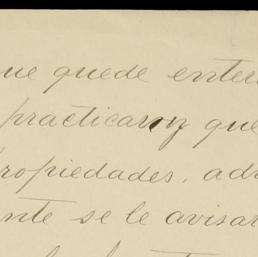 que quede enter
practicaron que
propiedades, ad
nte se le avisar